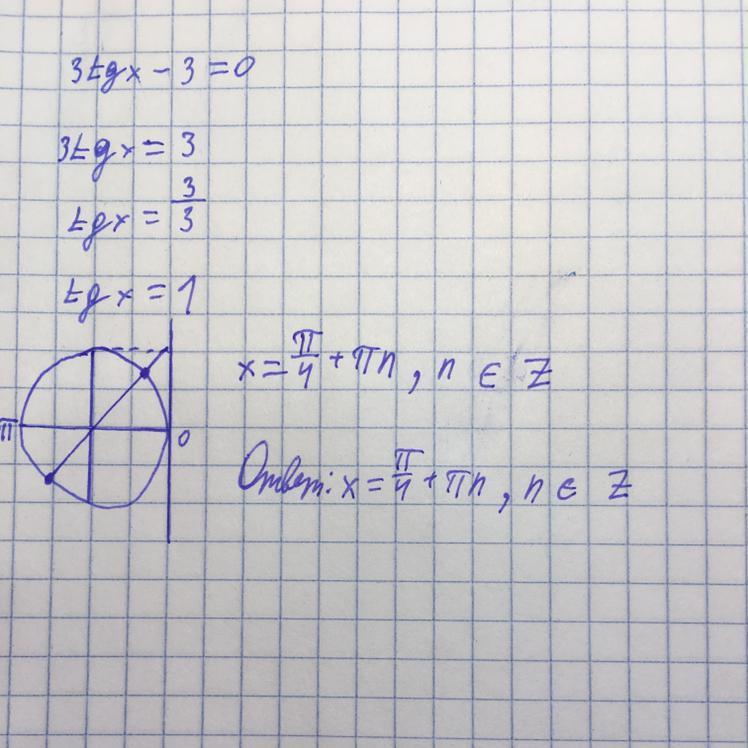 3tgx - 3 = 0
3tgx = 3
tgx = 3/3
tgx = 1
x = π/4 + πn, n ∈ Z
π
0
Ответ: x = π/4 + πn, n ∈ Z